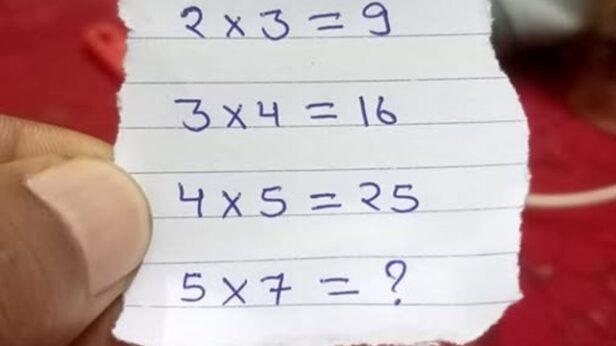 2 × 3 = 9
3 × 4 = 16
4 × 5 = 25
5 × 7 = ?